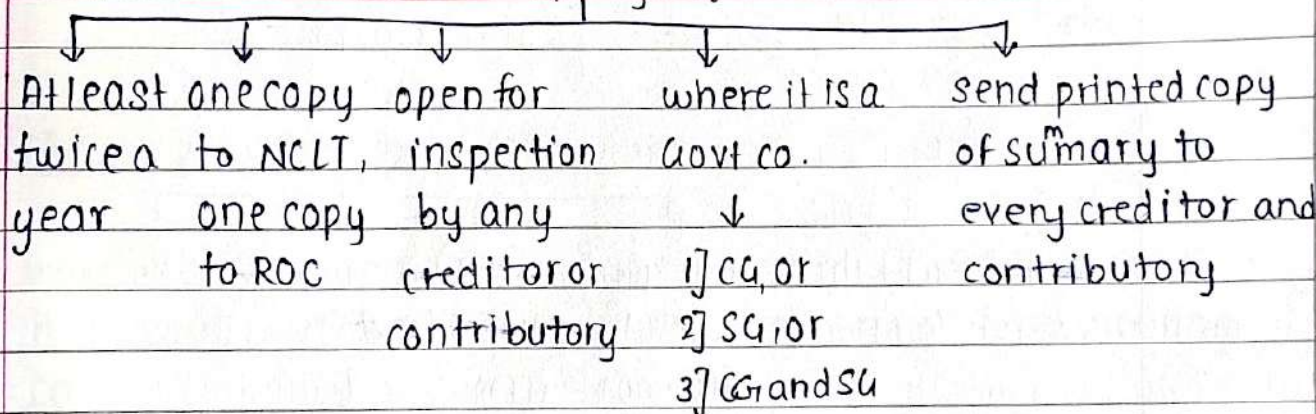 Atleast
twice a
year
one copy
to NCLT,
one copy
to ROC
open for
inspection
by any
creditor or
contributory
where it is a
Govt co.
↓
1] CG, or
2] SG, or
3] CG and SG
send printed copy
of summary to
every creditor and
contributory